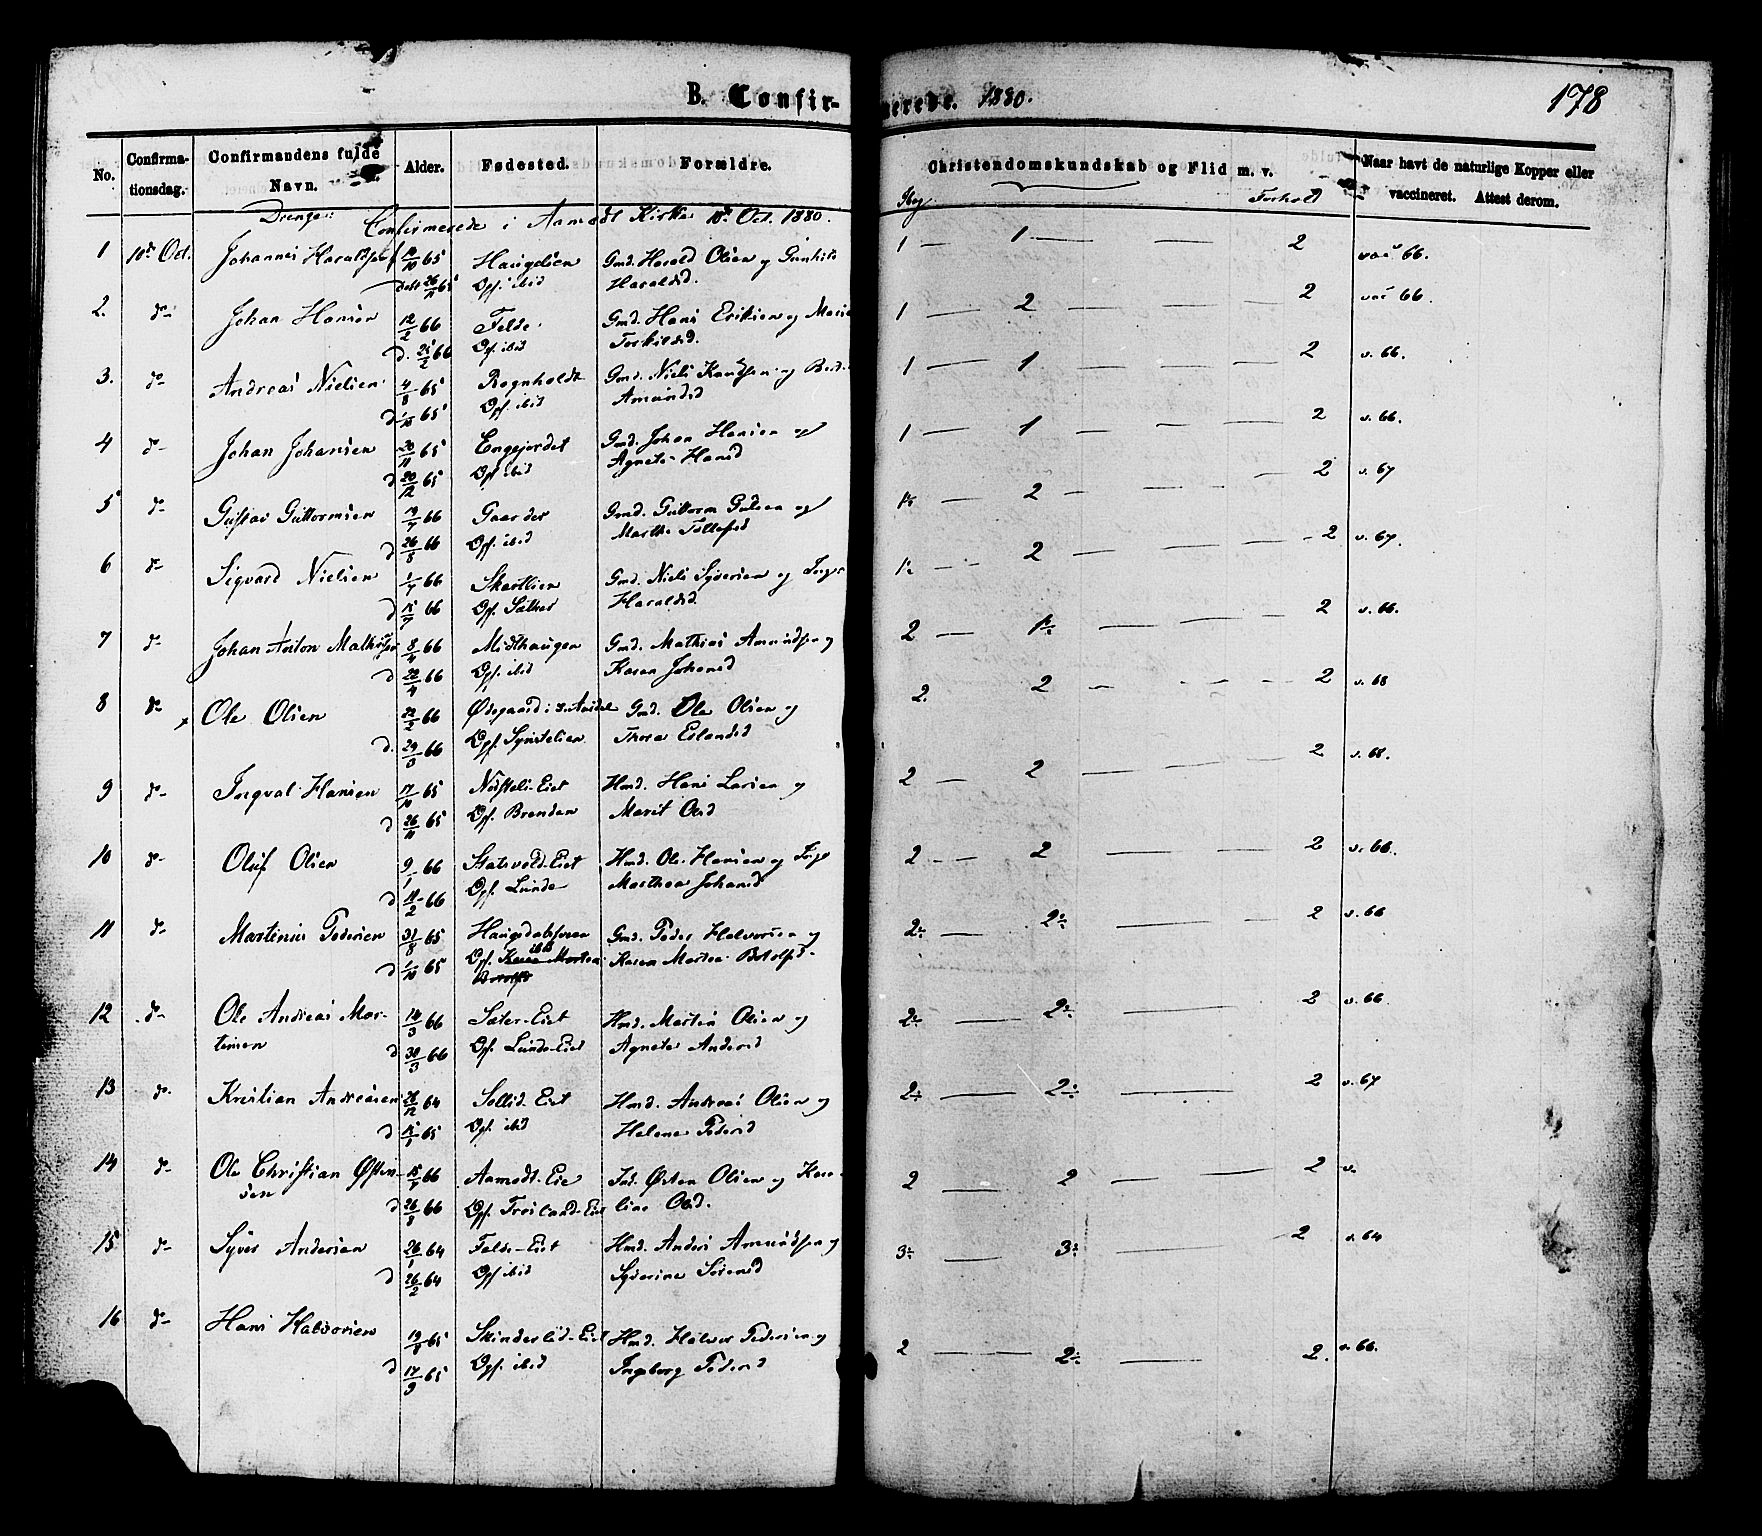 B. Confir-
merede. 1880.
178
No.
Confirma-
tionsdag.
Confirmandens fulde
Navn.
Alder.
Fødested.
Forældre.
Christendomskundskab og Flid m. v.
Forhold
Naar havt de naturlige Kopper eller
vaccineret. Attest derom.
Drenge: Confirmerede i Aamodt Kirke 10de Oct. 1880.
1 10de Oct. Johannes Haralds 65 Haugelien Gmd. Harald Olsen og Gunhild 1 — 1 — — 2 vac 66.
døbt 26/11 65 Opf. ibid Haraldsd.
2. do Johan Hansen 12/2 66 Felde. Gmd. Hans Eriksen og Marie 1 — 2 — — 2 vac 66.
d. 25/2 66 Opf. ibid Torkildsd.
3. do Andreas Nielsen 4/8 65 Rognholdt Gmd. Niels Knudsen og 1 — 1 — — 2 v. 66.
d 1/10 65 Opf. ibid Amundsd
4 do Johan Johansen 20/11 65 Engejordet Gmd. Johan Hansen og 1 — 1 — — 2 v. 66.
d 20/12 65 Opf ibid Agnete Hansd
5 do Gustav Guttormsen 19/7 66 Gaarder Gmd. Guttorm og — 2 — — 2 v. 67
d 26/8 66 Opf. ibid Marthe Tollefsd
6 do Sigvard Nielsen 1/7 66 Skartlien Gmd. Niels Syversen og Inger — 2 — — 2 v. 67.
d 15/7 66 Opf. Sæther Haraldsd.
7 do Johan Anton Mathis 8/4 66 Midthaugen Gmd. Mathias Amunds og 2 — — — 2 v. 66.
d 22/4 66 Opf. ibid Karen Johansd
8 do Ole Olsen 66 Ødegaard i Gmd. Ole Olsen og 2. 2 — — 2 v. 68
d. 66 Opf. Thora Erlandsd
9 do Ingval Hansen 17/10 65 Hmd. Hans Larsen og 2 — 2 — — 2 v. 68.
d 26/11 65 Opf. Brenden Marit Olsd
10 do Oluf Olsen 9/1 66 Hmd. Ole Hansen og Inge 2 — 2 — — 2 v. 66.
d 18/2 66 Opf. Lunde Marthea Johansd
11 do Martinius Pedersen 31/8 65 Gmd. Peder Halvorsen og 2÷ — 2÷ — 2 v. 66
d 1/10 65 Opf. ibid Karen Martea Botolfsd.
12 do Ole Andreas Mar- 14/3 66 Sæter-Eiet Hmd. Martin Olsen og 2÷ — 2÷ — 2 v. 66.
tinsen d 30/3 66 Opf. Lunde-Eiet Agnete Andersd
13 do. Kristian Andreasen 26/12 64 Sollid-Eiet Hmd. Andreas Olsen og 2÷ — 2÷ — 2 v. 67
d 15/1 65 Opf. ibid Helene Pedersd
14 do Ole Christian Østen- 66 Aamodt-Eie Ind. Østen Olsen og Karo- 2 — 2 — — 2 v.
sen d 26/8 66 Opf. Frøiland-Eiet line Olsd.
15 do Syver Andersen 26/1 64 Felde-Eiet Hmd. Anders Amunds og 3÷ — 3÷ — 2 v. 64
d 26/2 64 Opf ibid Syverine Sørensd
16 do Hans Halvorsen 19/8 65 Skinderlid-Eiet Hmd. Halvor Pedersen og 2 — — 2÷ — 2. v. 66.
d 17/9 65 Opf. ibid Ingeborg Pedersd